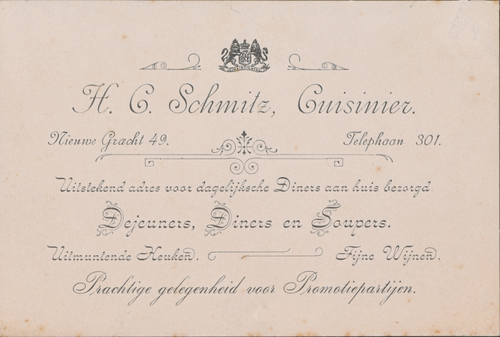 H. C. Schmitz, Cuisinier.
Nieuwe Gracht 49. Telephoon 301.
Uitstekend adres voor dagelijksche Diners aan huis bezorgd
Dejeuners, Diners en Soupers.
Uitmuntende Keuken. Fijne Wijnen.
Prachtige gelegenheid voor Promotiepartijen.